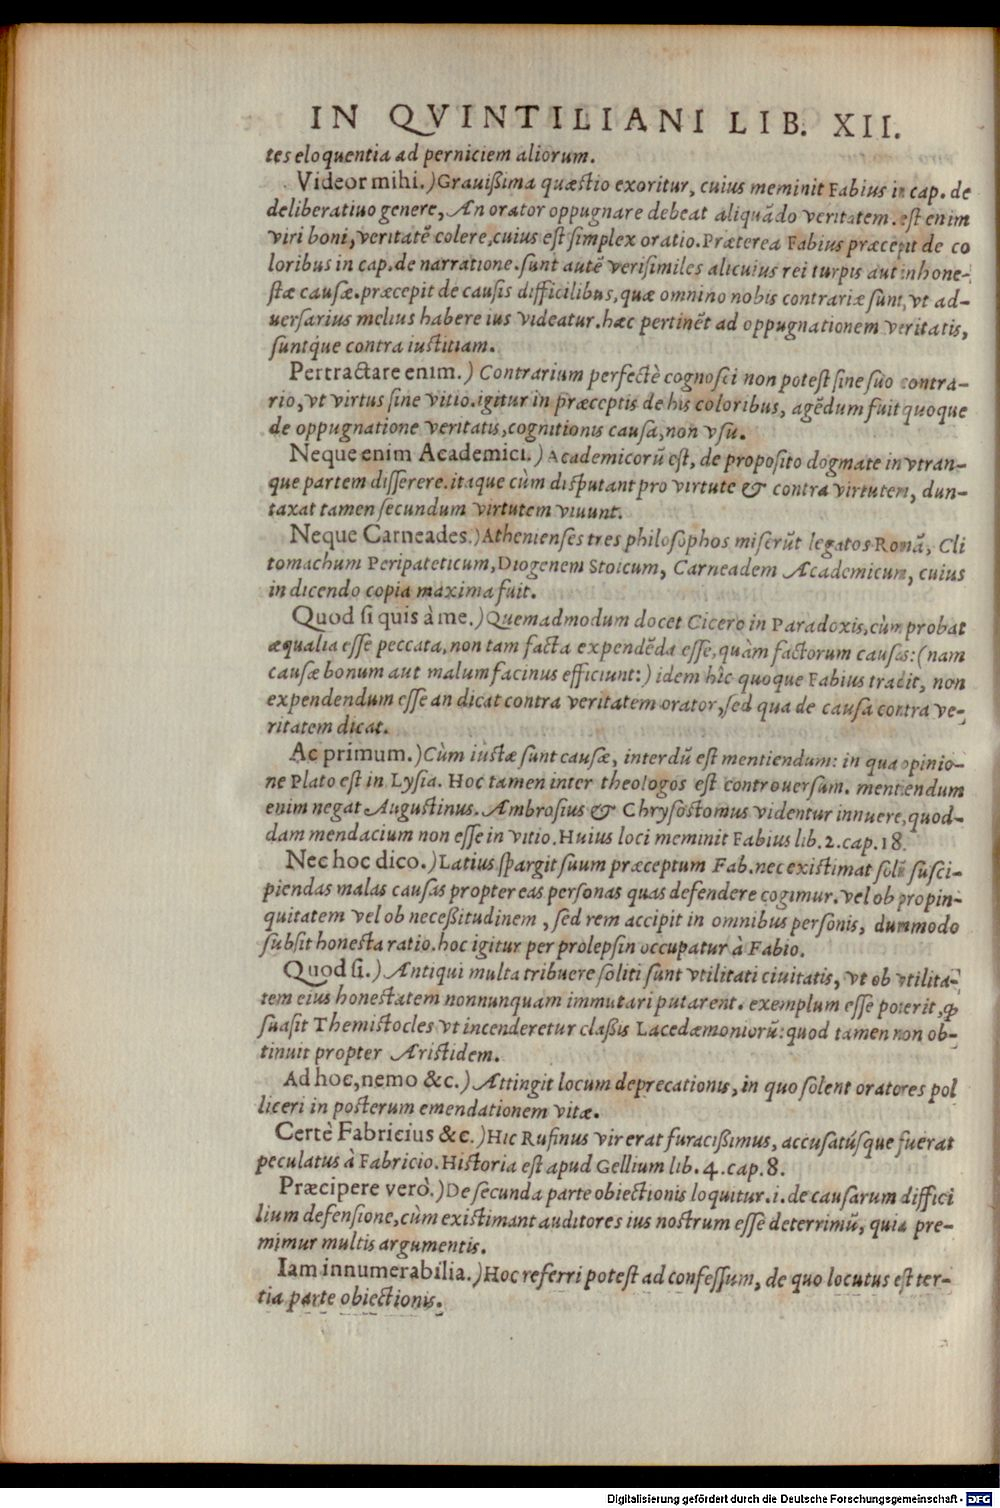 IN QVINTILIANI LIB. XII.
tes eloquentia ad perniciem aliorum.
Videor mihi.) Grauißima quæstio exoritur, cuius meminit Fabius in cap. de
deliberatiuo genere, An orator oppugnare debeat aliquãdo veritatem. est enim
viri boni, veritatẽ colere, cuius est simplex oratio. Præterea Fabius præcepit de co
loribus in cap. de narratione. sunt autẽ verisimiles alicuius rei turpis aut inhone-
stæ causæ. præcepit de causis difficilibus, quæ omnino nobis contrariæ sunt, vt ad-
uersarius melius habere ius videatur. hæc pertinẽt ad oppugnationem veritatis,
suntq́ue contra iustitiam.
Pertractare enim.) Contrarium perfectè cognosci non potest sine suo contra-
rio, vt virtus sine vitio. igitur in præceptis de his coloribus, agẽdum fuit quoque
de oppugnatione veritatis, cognitionis causa, non vsu.
Neque enim Academici.) Academicorũ est, de proposito dogmate in vtran-
que partem disserere. itaque cùm disputant pro virtute & contra virtutem, dun-
taxat tamen secundum virtutem viuunt.
Neque Carneades.) Athenienses tres philosophos miserũt legatos Romã, Cli
tomachum Peripateticum, Diogenem Stoicum, Carneadem Academicum, cuius
in dicendo copia maxima fuit.
Quod si quis à me.) Quemadmodum docet Cicero in Paradoxis, cùm probat
æqualia esse peccata, non tam facta expendẽda esse, quàm factorum causas: (nam
causæ bonum aut malum facinus efficiunt:) idem hîc quoque Fabius tradit, non
expendendum esse an dicat contra veritatem orator, sed qua de causa contra ve-
ritatem dicat.
Ac primum.) Cùm iustæ sunt causæ, interdũ est mentiendum: in qua opinio-
ne Plato est in Lysia. Hoc tamen inter theologos est controuersum. mentiendum
enim negat Augustinus. Ambrosius & Chrysostomus videntur innuere, quod-
dam mendacium non esse in vitio. Huius loci meminit Fabius lib. 2. cap. 18.
Nec hoc dico.) Latius spargit suum præceptum Fab. nec existimat solũ susci-
piendas malas causas propter eas personas quas defendere cogimur. vel ob propin-
quitatem vel ob neceßitudinem, sed rem accipit in omnibus personis, dummodo
subsit honesta ratio. hoc igitur per prolepsin occupatur à Fabio.
Quod si.) Antiqui multa tribuere soliti sunt vtilitati ciuitatis, vt ob vtilita-
tem eius honestatem nonnunquam immutari putarent. exemplum esse poterit, ꝙ
suasit Themistocles vt incenderetur claßis Lacedæmoniorũ: quod tamen non ob-
tinuit propter Aristidem.
Ad hoc, nemo &c.) Attingit locum deprecationis, in quo solent oratores pol
liceri in posterum emendationem vitæ.
Certè Fabricius &c.) Hic Rufinus vir erat furacißimus, accusatúsque fuerat
peculatus à Fabricio. Historia est apud Gellium lib. 4. cap. 8.
Præcipere verò.) De secunda parte obiectionis loquitur .i. de causarum diffici
lium defensione, cùm existimant auditores ius nostrum esse deterrimũ, quia pre-
mimur multis argumentis.
Iam innumerabilia.) Hoc referri potest ad confessum, de quo locutus est ter-
tia parte obiectionis.
Digitalisierung gefördert durch die Deutsche Forschungsgemeinschaft - DFG